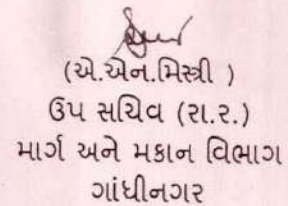 (એ.એન.મિસ્ત્રી )
ઉપ સચિવ (રા.ર.)
માર્ગ અને મકાન વિભાગ
ગાંધીનગર